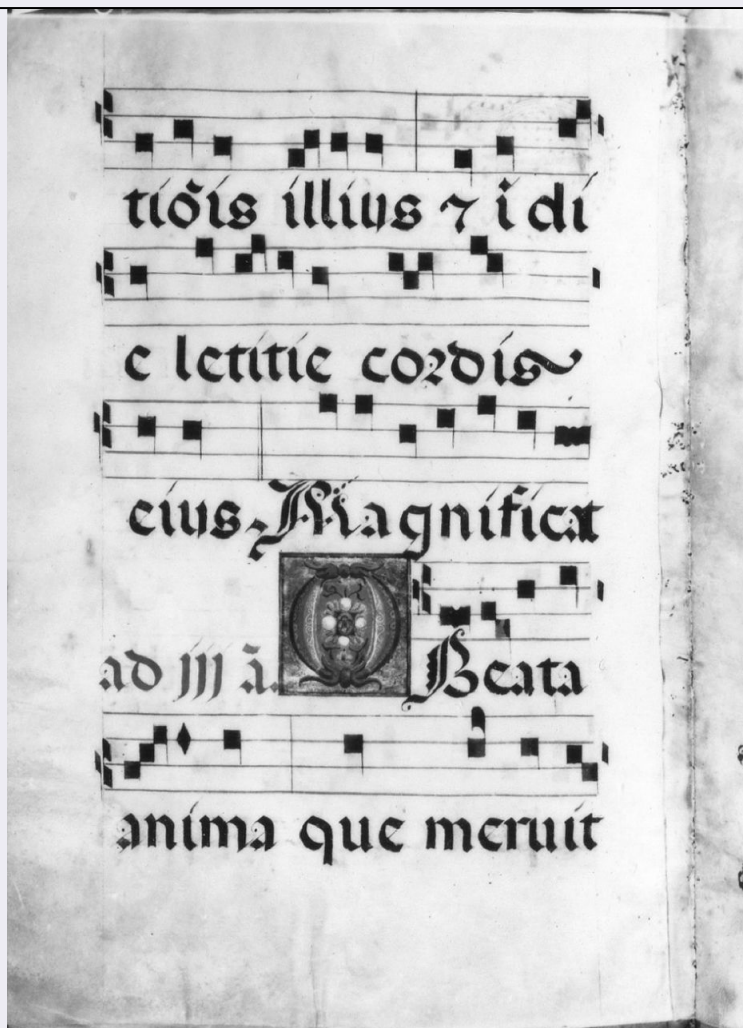 tiōis illius ⁊ i di
e letitie cordis
eius. Magnificat
ad iij ā. O Beata
anima que meruit